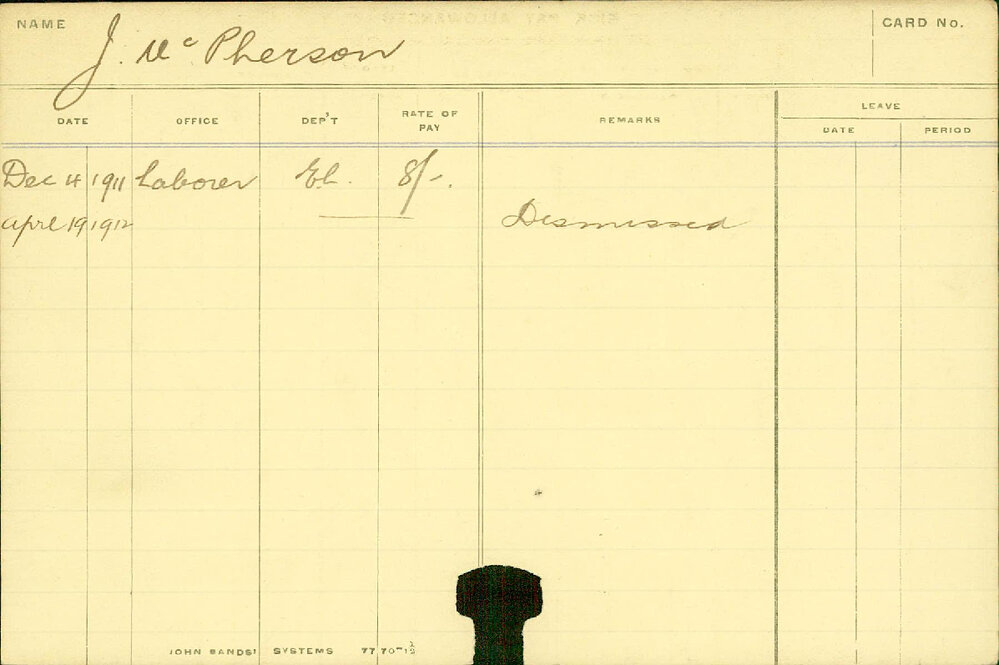 NAME J. McPherson CARD No.
DATE OFFICE DEP'T RATE OF PAY REMARKS LEAVE
DATE PERIOD
Dec 4 1911 Laborer El. 8/-.
Apre 19 1912 Dismissed
JOHN SANDS' SYSTEMS 77 70